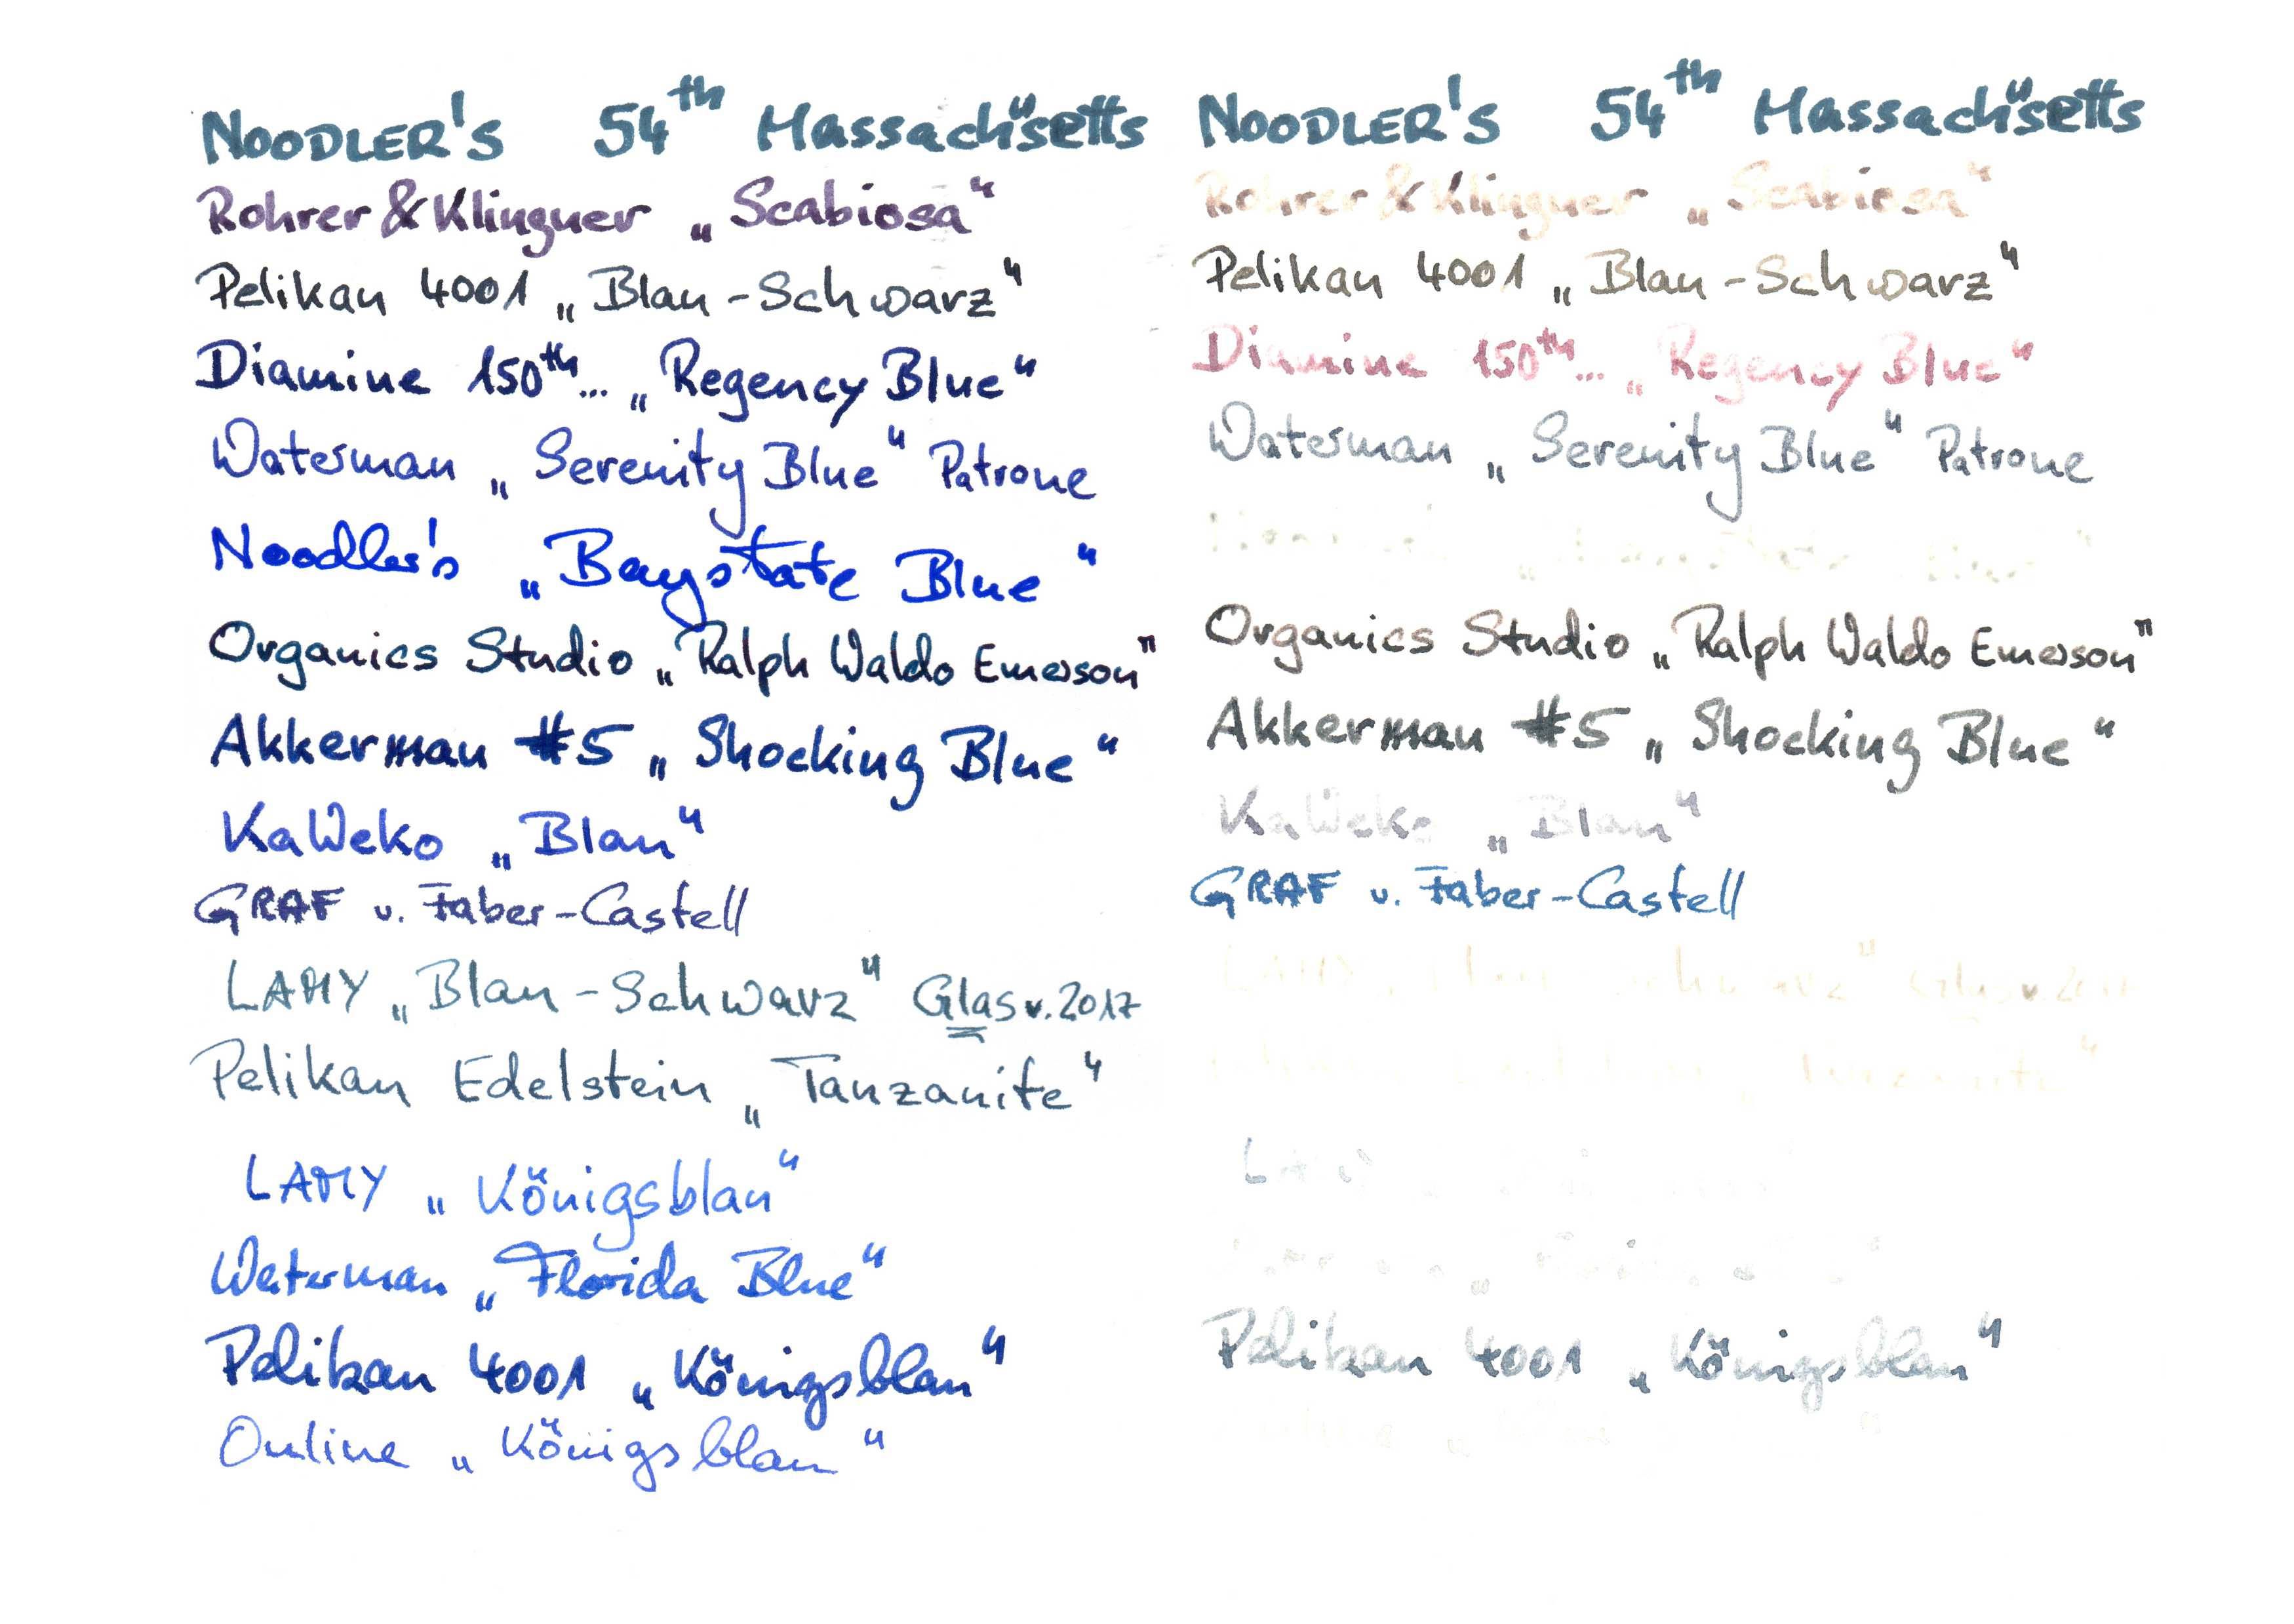 NOODLER'S 54th Massachüsetts
Rohrer & Klingner „Scabiosa“
Pelikan 4001 „Blau-Schwarz“
Diamine 150th... „Regency Blue“
Waterman „Serenity Blue“ Patrone
Noodler's „Baystate Blue“
Organics Studio „Ralph Waldo Emerson"
Akkerman #5 „Shocking Blue“
KaWeko „Blau“
GRAF v. Faber-Castell
LAMY „Blau-Schwarz“ Glas v. 2017
Pelikan Edelstein „Tanzanite“
LAMY „Königsblau“
Waterman „Florida Blue“
Pelikan 4001 „Königsblau“
Online „Königsblau“
NOODLER'S 54th Massachüsetts
Rohrer & Klingner „Scabiosa“
Pelikan 4001 „Blau-Schwarz“
Diamine 150th... „Regency Blue“
Waterman „Serenity Blue“ Patrone
Organics Studio „Ralph Waldo Emerson"
Akkerman #5 „Shocking Blue“
KaWeko „Blau“
GRAF v. Faber-Castell
Pelikan 4001 „Königsblau“